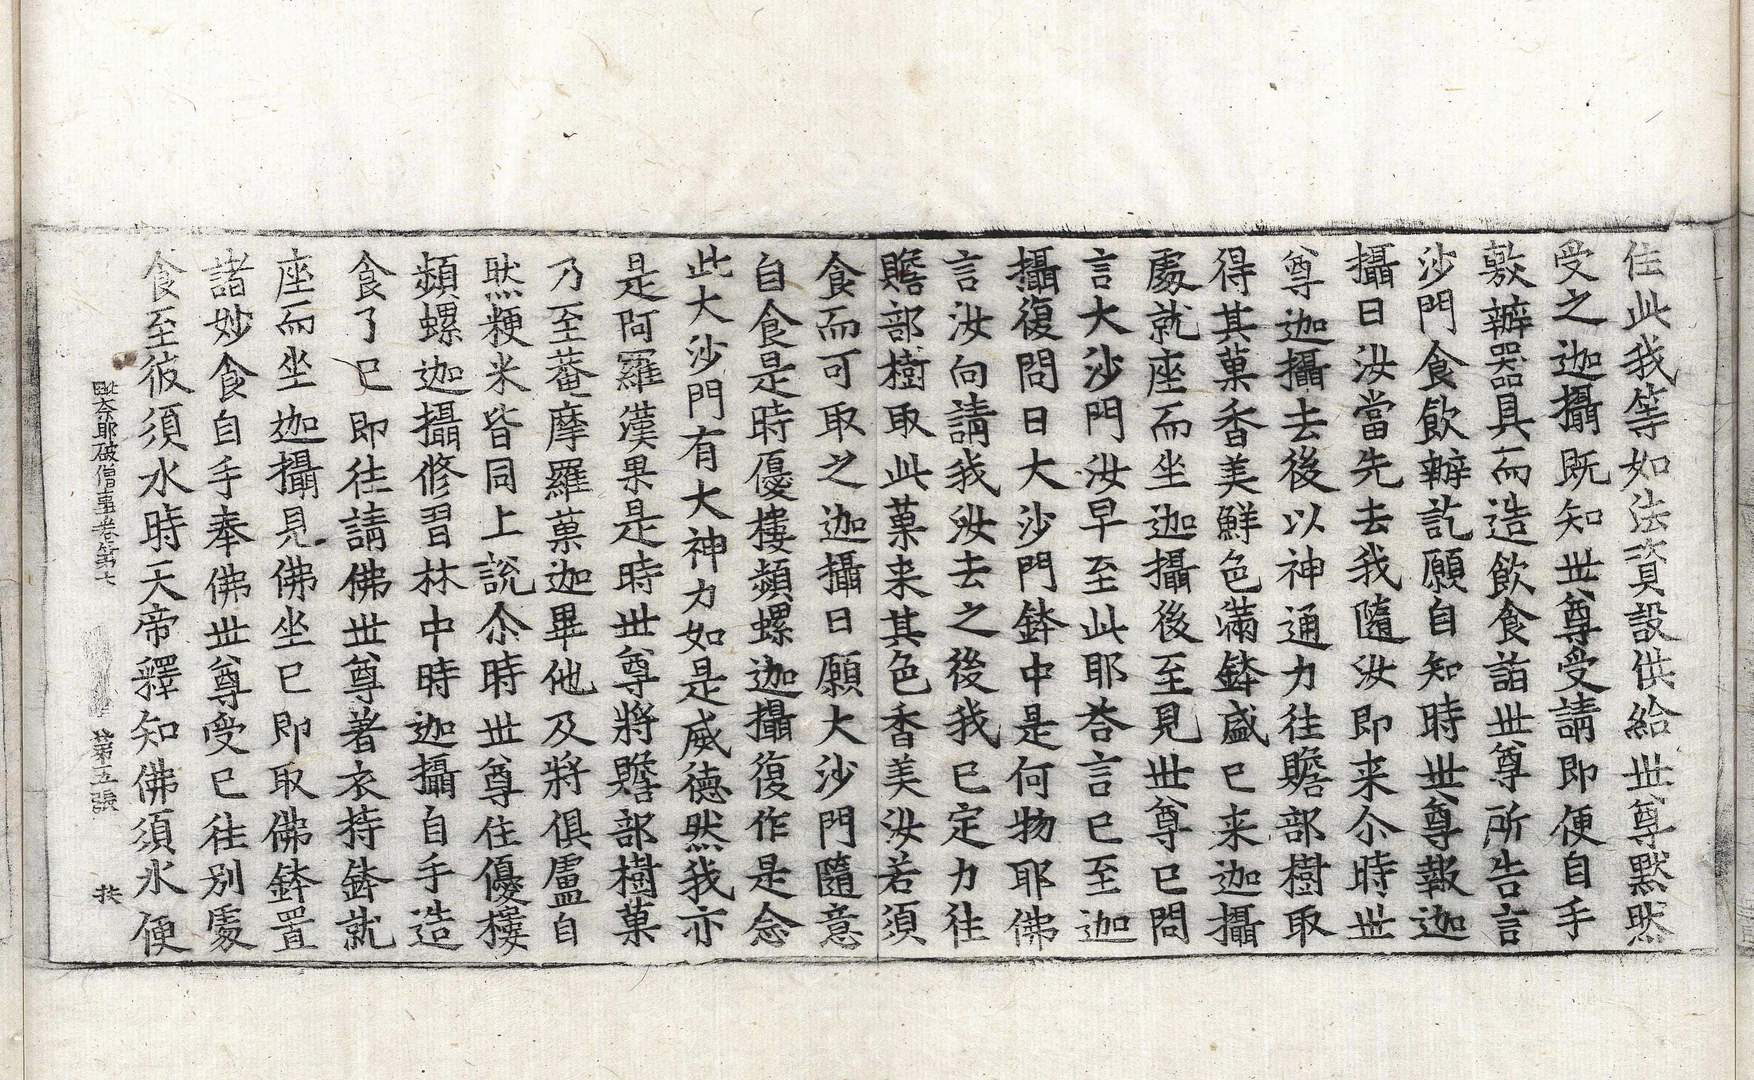 住此我等如法資設供給世尊默然
受之迦攝既知世尊受請即便自手
敷辦器具而造飲食詣世尊所告言
沙門食飲辦訖願自知時世尊報迦
攝曰汝當先去我隨汝即来尒時世
尊迦攝去後以神通力往贍部樹取
得其菓香美鮮色滿鉢盛已来迦攝
處就座而坐迦攝後至見世尊已問
言大沙門汝早至此耶荅言已至迦
攝復問曰大沙門鉢中是何物耶佛
言汝向請我汝去之後我已定力往
贍部樹取此菓来其色香美汝若須
食而可取之迦攝曰願大沙門隨意
自食是時優樓頻螺迦攝復作是念
此大沙門有大神力如是威德然我亦
是阿羅漢果是時世尊將贍部樹菓
乃至菴摩羅菓迦畢他及將俱盧自
然粳米皆同上說尒時世尊住優樓
頻螺迦攝修習林中時迦攝自手造
食了已即往請佛世尊著衣持鉢就
座而坐迦攝見佛坐已即取佛鉢置
諸妙食自手奉佛世尊受已往別處
食至彼須水時天帝釋知佛須水便
毗奈耶破僧事卷第六 第五張 扶